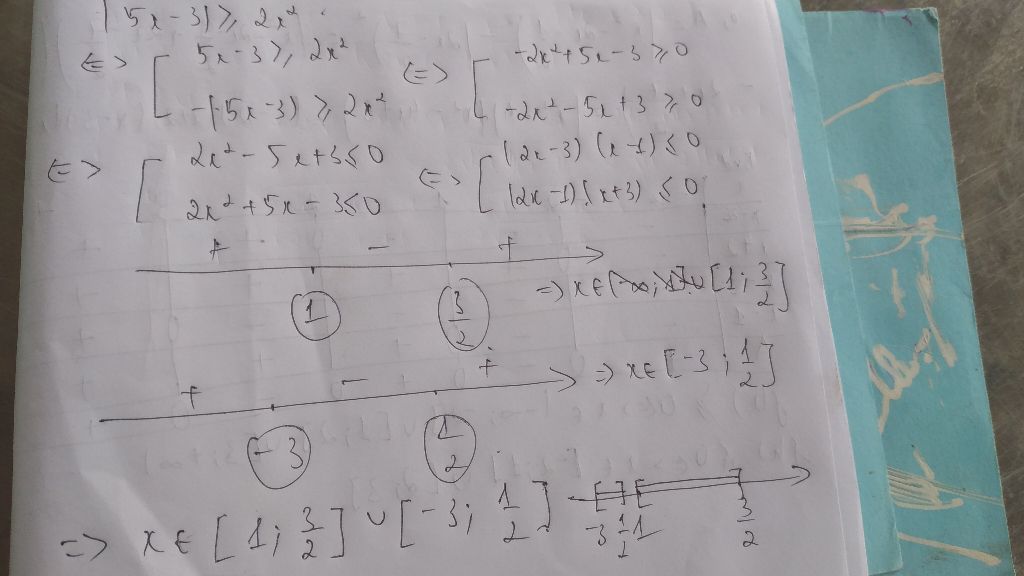 |5x-3| ≥ 2x²
<=> [ 5x-3 ≥ 2x² <=> [ -2x²+5x-3 ≥ 0
-(5x-3) ≥ 2x² -2x²-5x+3 ≥ 0
<=> [ 2x²-5x+3 ≤ 0 <=> [ (2x-3)(x-1) ≤ 0
2x²+5x-3 ≤ 0 (2x-1)(x+3) ≤ 0
+ - +
1 3/2 => x ∈ [1; 3/2]
+ - + => x ∈ [-3; 1/2]
-3 1/2
=> x ∈ [1; 3/2] ∪ [-3; 1/2] [ ] [ ]
-3 1/2 1 3/2